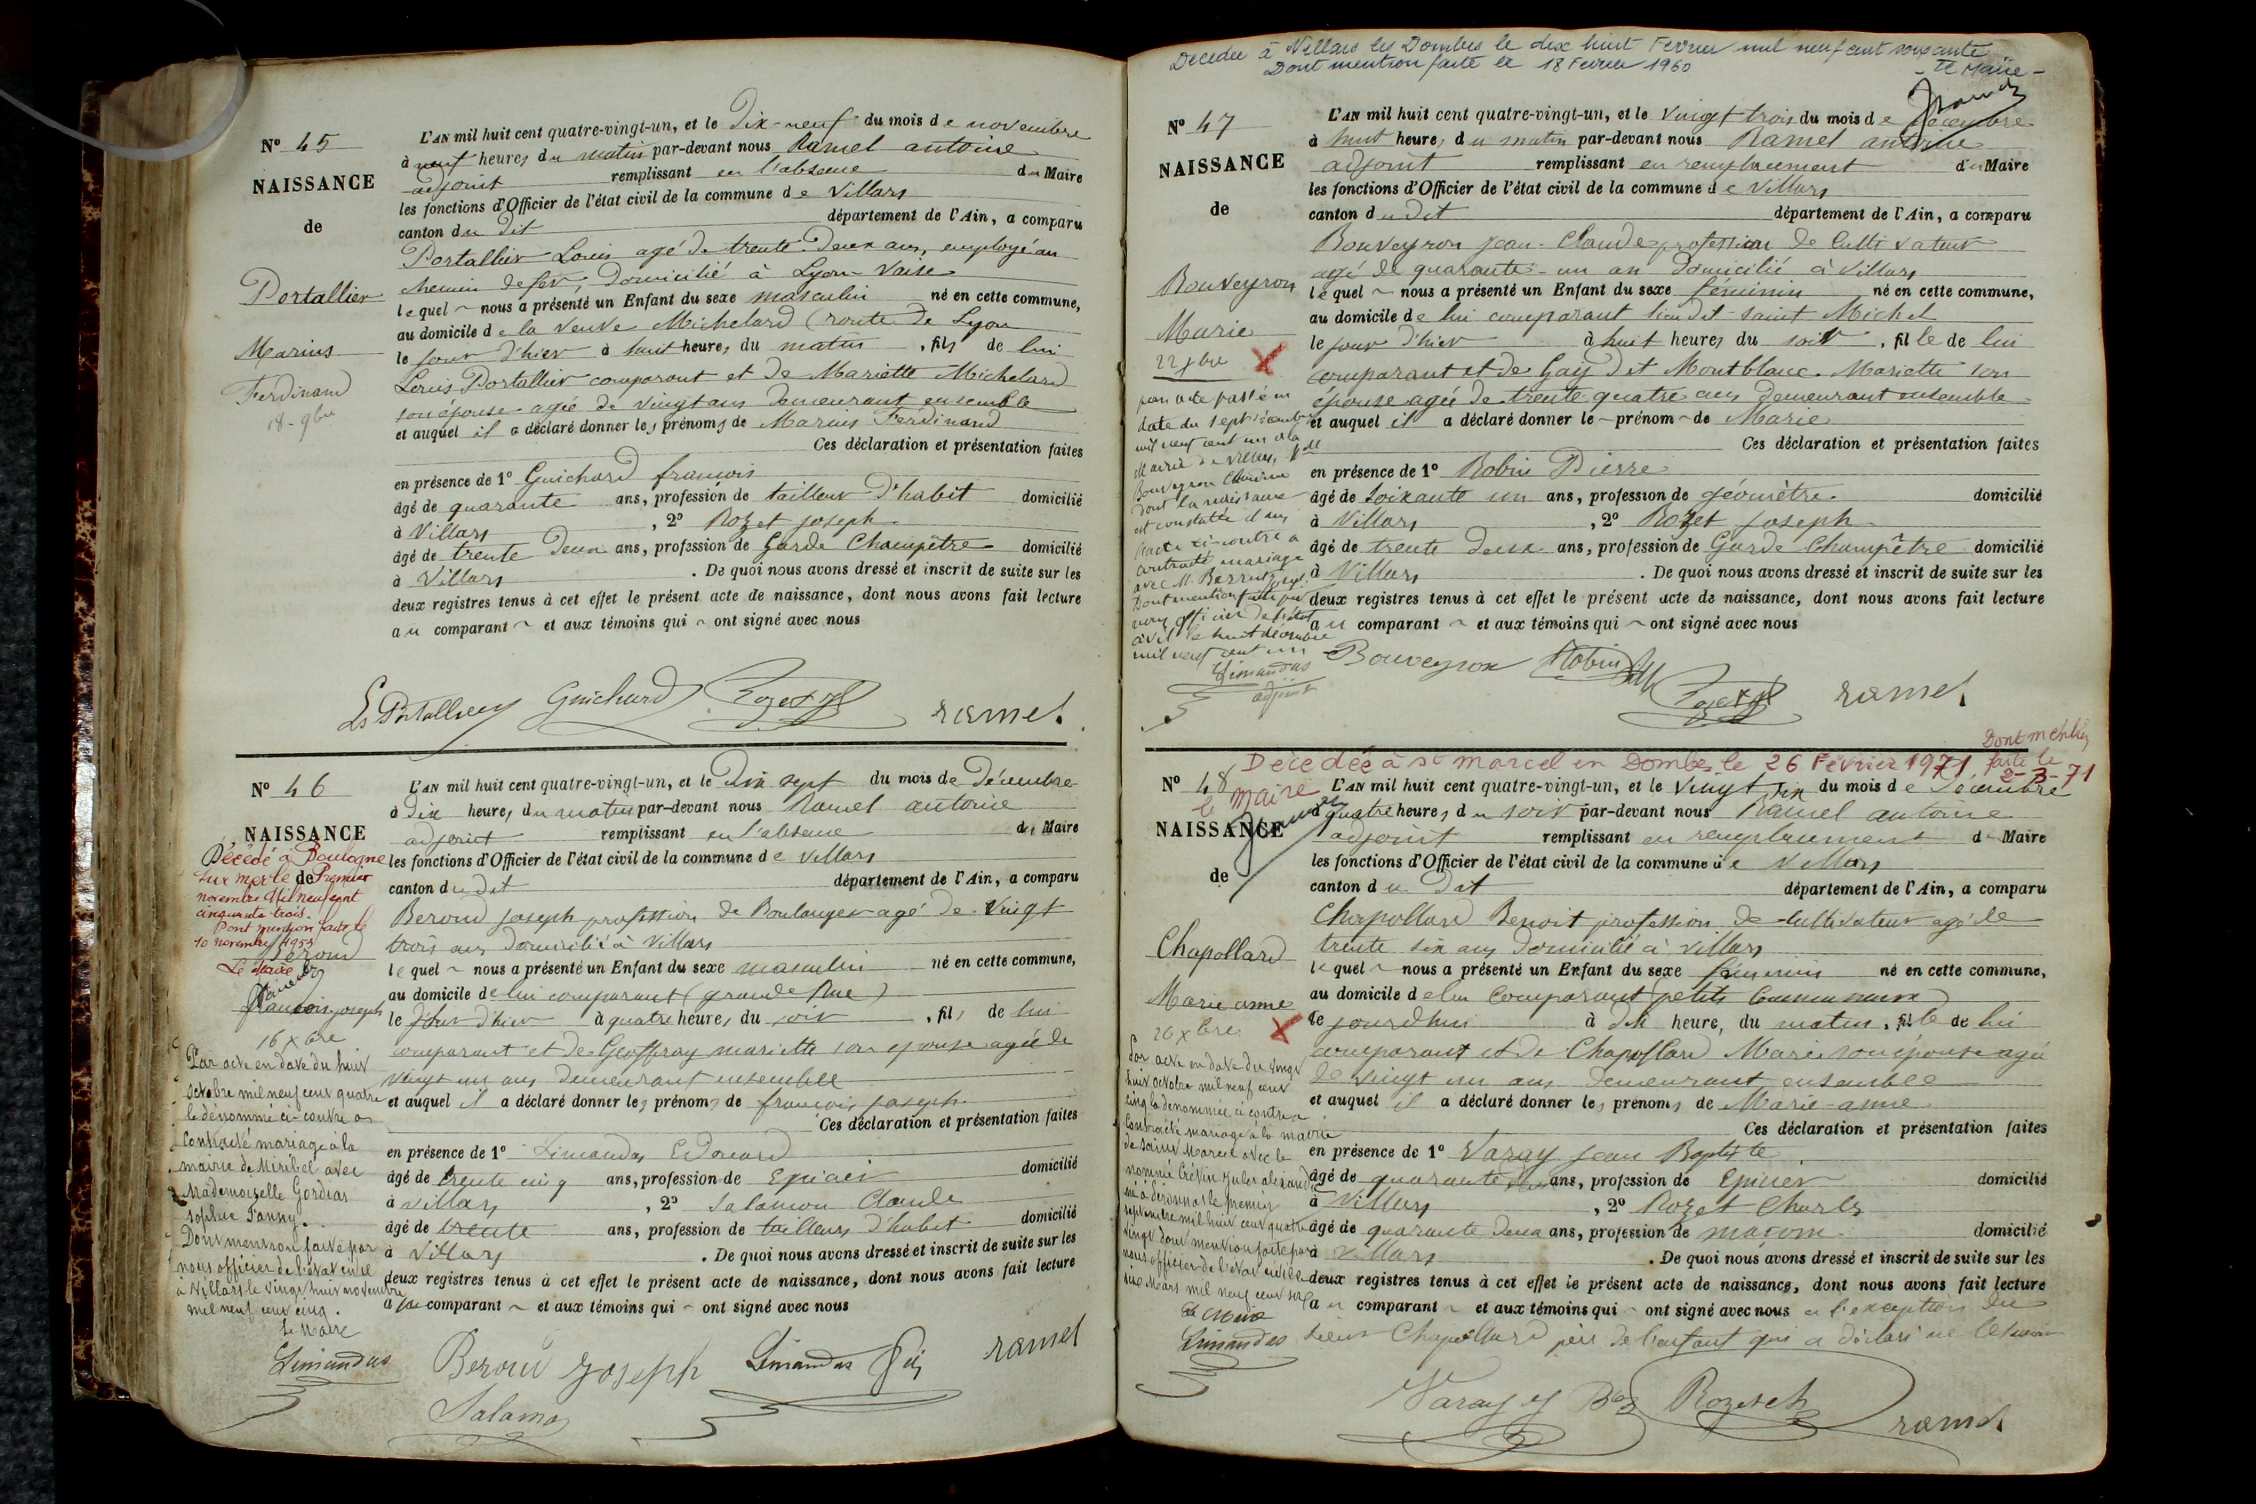 Nº 45
NAISSANCE
de
Portallier
Marius
Ferdinand
18 - 9bre
L'AN mil huit cent quatre-vingt-un, et le Dix-neuf du mois de novembre
à neuf heures du matin par-devant nous Ramel antoine
adjoint remplissant en l'absence du Maire
les fonctions d'Officier de l'état civil de la commune de Villars
canton du dit département de l'Ain, a comparu
Portallier Louis agé de trente deux ans, employé au
chemin de fer, Domicilié à Lyon-Vaise
lequel nous a présenté un Enfant du sexe masculin né en cette commune,
au domicile de la Veuve Michelard (route de Lyon
le jour d'hier à huit heures du matin, fils de lui
Louis Portallier comparant et de Mariette Michelard
son épouse agée de vingt ans demeurant ensemble
et auquel il a déclaré donner les prénoms de Marius Ferdinand
Ces déclaration et présentation faites
en présence de 1º Guichard francois
âgé de quarante ans, profession de tailleur d'habit domicilié
à Villars, 2º Rozet joseph
âgé de trente Deux ans, profession de Garde Champêtre domicilié
à Villars. De quoi nous avons dressé et inscrit de suite sur les
deux registres tenus à cet effet le présent acte de naissance, dont nous avons fait lecture
au comparant et aux témoins qui ont signé avec nous
Ls Portallier Guichard Rozet ramel
Nº 46
NAISSANCE
de
Décédé à Boulogne
sur mer le Premier
novembre Mil neuf cent
cinquante trois.
Dont mention faite le
10 novembre 1953
Le Maire
Beroud
francois joseph
16 Xbre
Par acte en date du huit
octobre mil neuf cent quatre
le dénommé ci-contre a
contracté mariage à la
mairie de Miribel avec
Mademoiselle Gordias
Sophie Fanny.
Dont mention faite par
nous officier de l'état civil
à Villars le vingt huit novembre
mil neuf cent cinq.
Le Maire
Limandas
L'AN mil huit cent quatre-vingt-un, et le Dix sept du mois de Décembre
à Dix heures du matin par-devant nous Ramel antoine
adjoint remplissant en l'absence du Maire
les fonctions d'Officier de l'état civil de la commune de Villars
canton du dit département de l'Ain, a comparu
Beroud joseph profession de Boulanger agé de Vingt
trois ans domicilié à Villars
lequel nous a présenté un Enfant du sexe masculin né en cette commune,
au domicile de lui comparant (grande Rue)
le jour d'hier à quatre heures du soir, fils de lui
comparant et de Geoffray mariette son épouse agée de
vingt un ans demeurant ensemble
et auquel il a déclaré donner les prénoms de francois joseph
Ces déclaration et présentation faites
en présence de 1º Limandas Edouard
âgé de trente cinq ans, profession de Epicier domicilié
à Villars, 2º Salamon Claude
âgé de trente ans, profession de tailleurs d'habit domicilié
à Villars. De quoi nous avons dressé et inscrit de suite sur les
deux registres tenus à cet effet le présent acte de naissance, dont nous avons fait lecture
a comparant et aux témoins qui ont signé avec nous
Beroud joseph Limandas ramel
Salamon
Décédée à Villars les Dombes le dix huit Fevrier mil neuf cent soixante
Dont mention faite le 18 Fevrier 1960
Le Maire
Nº 47
NAISSANCE
de
Bouveyron
Marie
22 Xbre
par acte passé en
date du sept décembre
mil neuf cent un à la
Mairie de Villars, Mlle
Bouveyron Marie
dont la naissance
est constatée dans
l'acte ci-contre a
contracté mariage
avec M.
Dont mention faite par
nous officier de l'état
civil le huit décembre
mil neuf cent un
Limandas
adjoint
L'AN mil huit cent quatre-vingt-un, et le Vingt trois du mois de Décembre
à huit heures du matin par-devant nous Ramel antoine
adjoint remplissant en remplacement du Maire
les fonctions d'Officier de l'état civil de la commune de Villars
canton du dit département de l'Ain, a comparu
Bouveyron Jean-Claude profession de Cultivateur
agé de quarante-un an Domicilié à Villars
lequel nous a présenté un Enfant du sexe féminin né en cette commune,
au domicile de lui comparant lieu dit saint Michel
le jour d'hier à huit heures du soir, fille de lui
comparant et de Gay dit Montblanc Mariette son
épouse agée de trente quatre ans demeurant ensemble
et auquel il a déclaré donner le prénom de Marie
Ces déclaration et présentation faites
en présence de 1º Robin Pierre
âgé de soixante un ans, profession de géomètre domicilié
à Villars, 2º Rozet Joseph
âgé de trente deux ans, profession de Garde Champêtre domicilié
à Villars. De quoi nous avons dressé et inscrit de suite sur les
deux registres tenus à cet effet le présent acte de naissance, dont nous avons fait lecture
au comparant et aux témoins qui ont signé avec nous
Bouveyron Robin Rozet ramel
Décédée à St marcel en Dombes le 26 Février 1971. Dont mention
faite le
2-3-71
le Maire
Nº 48
NAISSANCE
de
Chapollard
Marie anne
26 Xbre
Par acte en date du vingt
huit octobre mil neuf cent
cinq la dénommée ci contre a
contracté mariage à la mairie
de Saint Marcel avec le
nommé Crétin Jules alexandre
né à le premier
septembre mil huit cent quatre
vingt dont mention faite par
nous officier de l'état civil le
six Mars mil neuf cent six
Le Maire
Limandas
L'AN mil huit cent quatre-vingt-un, et le Vingt six du mois de Décembre
à quatre heures du soir par-devant nous Ramel antoine
adjoint remplissant en remplacement du Maire
les fonctions d'Officier de l'état civil de la commune de Villars
canton du Dit département de l'Ain, a comparu
Chapollard Benoit profession de Cultivateur agé de
trente six ans Domicilié à Villars
lequel nous a présenté un Enfant du sexe féminin né en cette commune,
au domicile de lui Comparant (petits Communaux)
le jourdhui à dix heures du matin, fille de lui
comparant et de Chapollard Marie son épouse agée
de vingt un ans demeurant ensemble
et auquel il a déclaré donner les prénoms de Marie-anne
Ces déclaration et présentation faites
en présence de 1º Varay Jean Baptiste
âgé de quarante deux ans, profession de Epicier domicilié
à Villars, 2º Rozet Charles
âgé de quarante deux ans, profession de maçon domicilié
à Villars. De quoi nous avons dressé et inscrit de suite sur les
deux registres tenus à cet effet le présent acte de naissance, dont nous avons fait lecture
au comparant et aux témoins qui ont signé avec nous à l'exception du
sieur Chapollard père de l'enfant qui a déclaré ne le savoir
Varay Rozet ch ramel